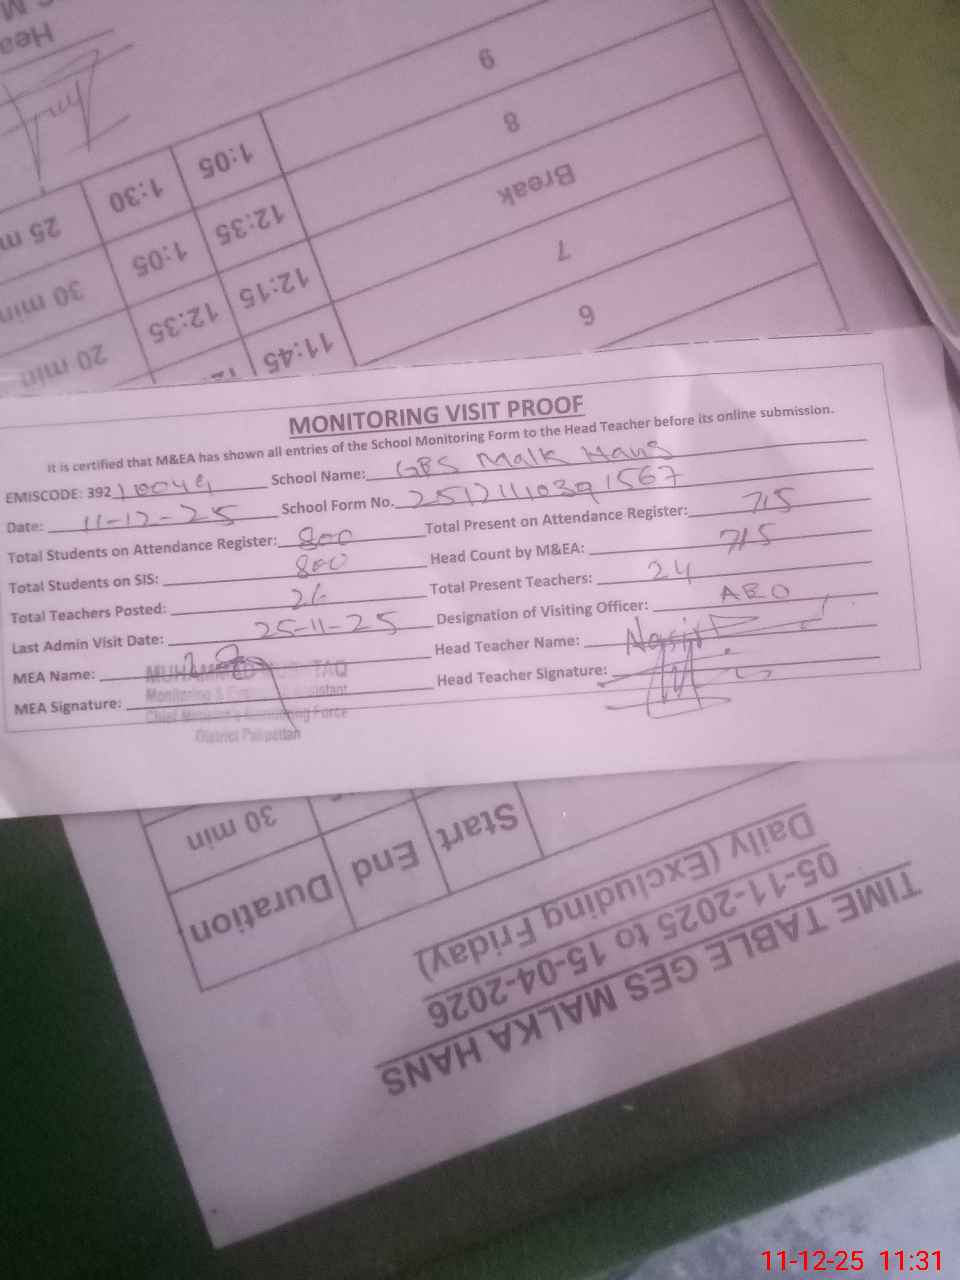 Hea
9
8
Break
7
6
1:05
12:35
12:15
11:45
1:30
1:05
12:35
25 m
30 min
20 min
MONITORING VISIT PROOF
It is certified that M&EA has shown all entries of the School Monitoring Form to the Head Teacher before its online submission.
EMISCODE: 392 School Name: Malk Hans
Date: 11-12-25 School Form No.
Total Students on Attendance Register: 800 Total Present on Attendance Register: 715
Total Students on SIS: 800 Head Count by M&EA: 715
Total Teachers Posted: 26 Total Present Teachers: 24
Last Admin Visit Date: 25-11-25 Designation of Visiting Officer:
MEA Name: Head Teacher Name:
MEA Signature: Head Teacher Signature:
Monitoring & Assistant
Force
District Pakpattan
TIME TABLE GES MALKA HANS
05-11-2025 to 15-04-2026
Daily (Excluding Friday)
Start End Duration
30 min
11-12-25 11:31